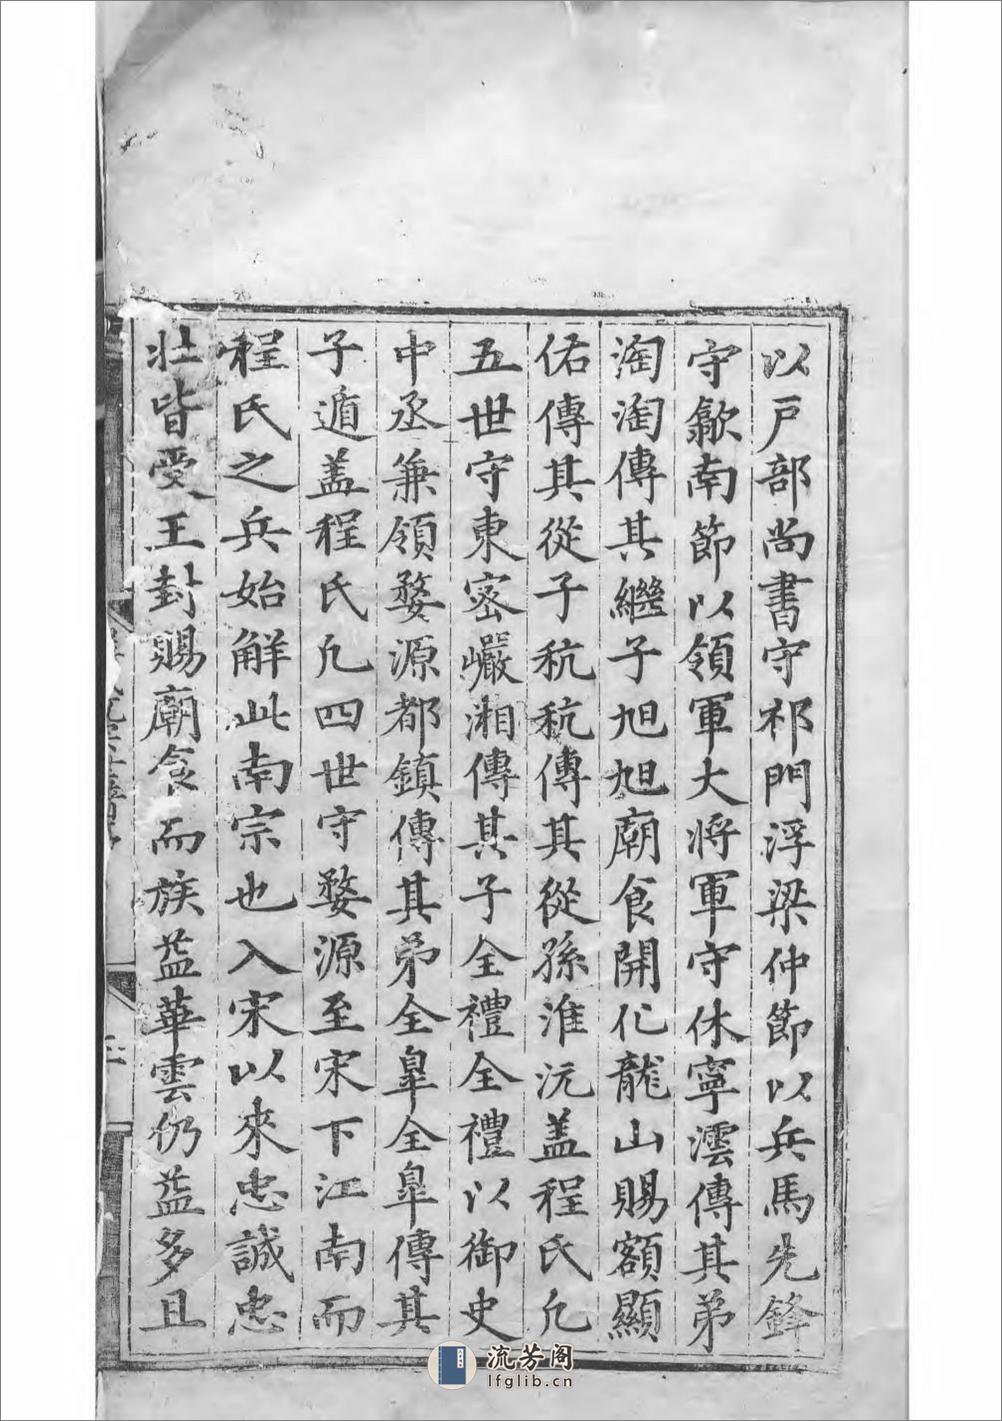 以戸部尚書守祁門浮梁仲節以兵馬先鋒
守歙南節以領軍大將軍守休寧澐傳其弟
淘淘傳其繼子旭旭廟食開化龍山賜額顯
佑傳其從子秔秔傳其從孫淮沅盖程氏凢
五世守東密巗湘傳其子全禮全禮以御史
中丞兼領婺源都鎮傳其弟全臯全臯傳其
子遁盖程氏凢四世守婺源至宋下江南而
程氏之兵始解此南宗也入宋以來忠誠忠
壯皆受王封賜廟食而族益華雲仍益多且
流芳阁
lfglib.cn